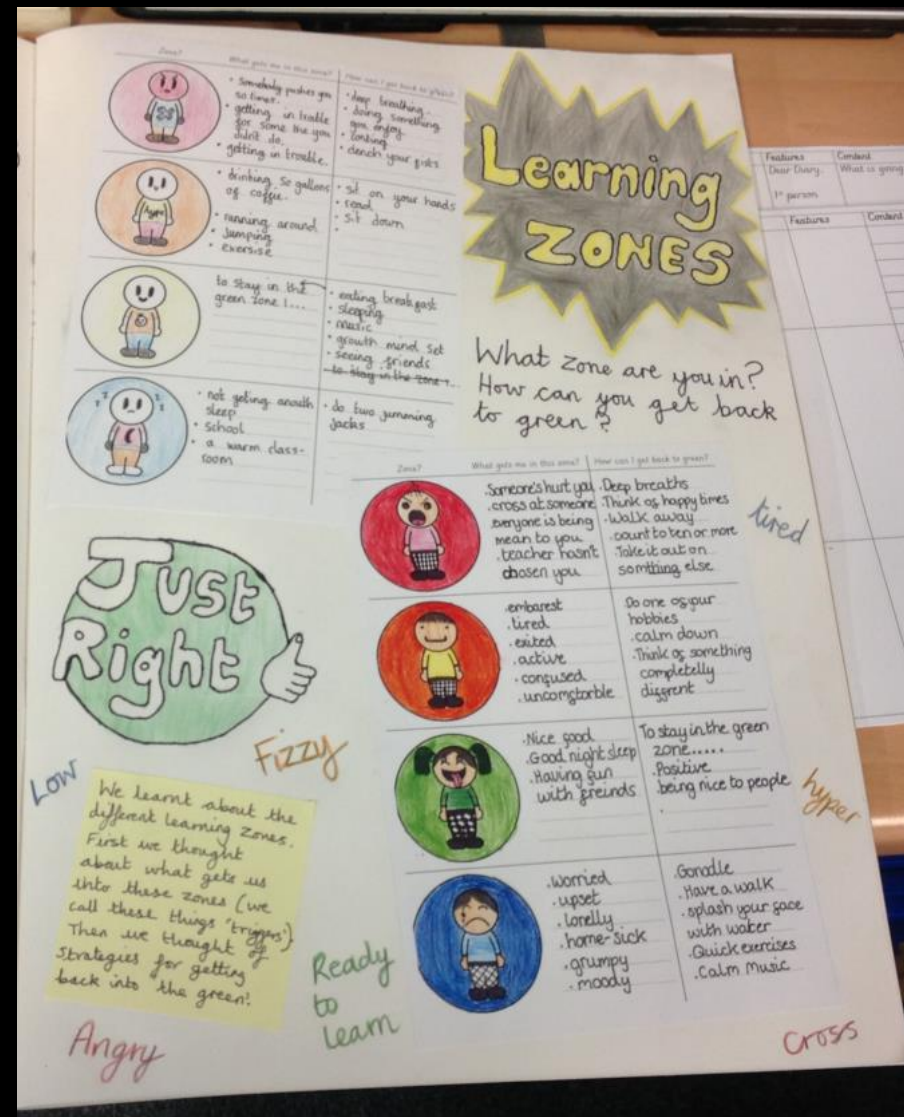 Zone?
What gets me in this zone?
How can I get back to green?
• Somebody pushes you
so times.
• getting in trouble
for some thing you
didn't do.
• getting in trouble.
• deep breathing
• doing something
you enjoy.
• clench your fists
• drinking 50 gallons
of coffee.
• running around
• Jumping
• exersise
• sit on your hands
• read
• sit down
hype
to stay in the
green zone I...
• eating breakfast
• sleeping
• music
• growth mind set
• seeing friends
to stay in the zone I...
• not geting enouth
sleep
• school
• a warm class-
room
• do two jumming
jacks
z z z
z z
Learning
ZONES
What zone are you in?
How can you get back
to green?
Zone?
What gets me in this zone?
How can I get back to green?
.Someone's hurt you
.cross at someone
everyone is being
mean to you
.teacher hasn't
chosen you
.Deep breaths
.Think of happy times
.Walk away
.count to ten or more
.Take it out on
somthing else
.embarest
.tired
.exited
.active
.confused
.uncomftorble
Do one of your
hobbies
.calm down
.Think of something
completelly
diffrent
.Nice food
.Good night sleep
.Having fun
with freinds
To stay in the green
zone.....
.Positive
.being nice to people
.worried
.upset
.lonelly
.home-sick
.grumpy
.moody
.Gonodle
.Have a walk
.splash your face
with water
.Quick exercises
.Calm Music
tired
Just
Right
Fizzy
Low
hyper
We learnt about the
different learning zones.
First we thought
about what gets us
into these zones (we
call these things 'triggers').
Then we thought of
Strategies for getting
back into the green!
Ready
to
learn
Angry
Cross
Features
Content
Dear Diary.
What is going
1st person
Features
Content